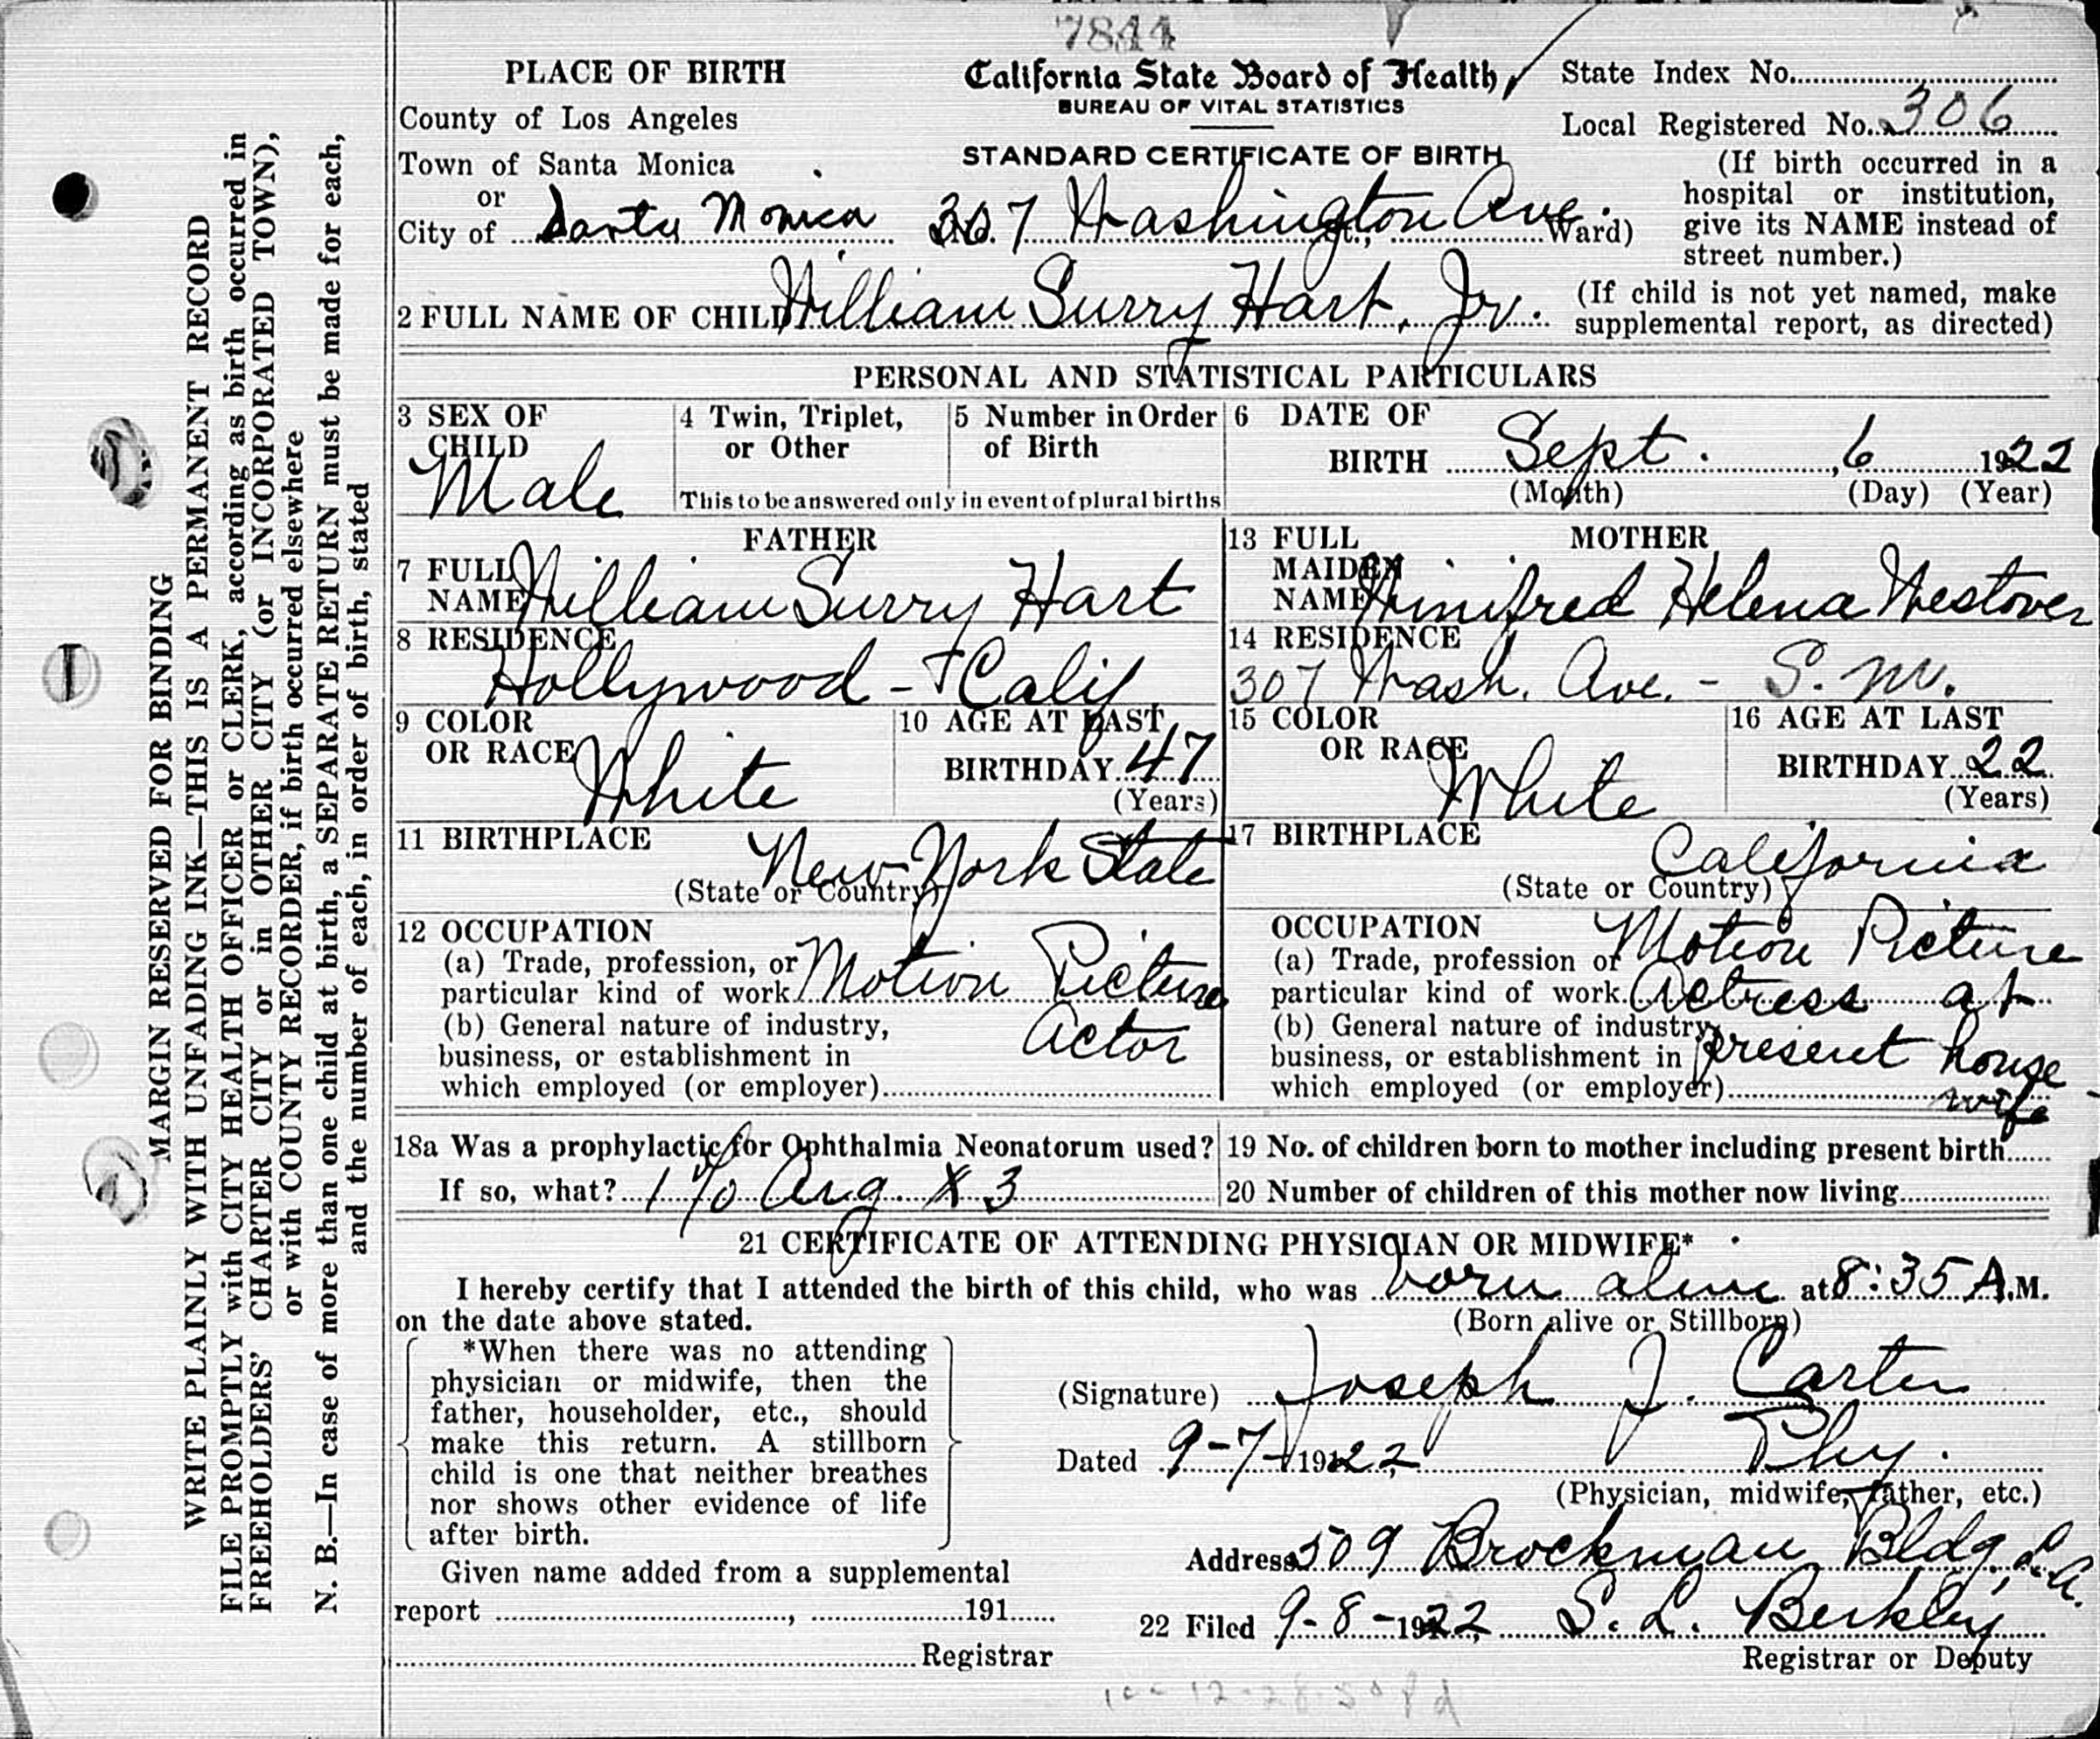 7844
PLACE OF BIRTH
County of Los Angeles
Town of Santa Monica
or
City of Santa Monica 307 Washington Ave. Ward)
California State Board of Health
BUREAU OF VITAL STATISTICS
STANDARD CERTIFICATE OF BIRTH
State Index No.
Local Registered No. 306
(If birth occurred in a
hospital or institution,
give its NAME instead of
street number.)
2 FULL NAME OF CHILD William Surry Hart, Jr.
(If child is not yet named, make
supplemental report, as directed)
PERSONAL AND STATISTICAL PARTICULARS
3 SEX OF
CHILD
Male
4 Twin, Triplet,
or Other
5 Number in Order
of Birth
This to be answered only in event of plural births
6 DATE OF
BIRTH Sept. 6, 1922
(Month) (Day) (Year)
FATHER
7 FULL
NAME William Surry Hart
8 RESIDENCE
Hollywood - Calif
9 COLOR
OR RACE White
10 AGE AT LAST
BIRTHDAY 47
(Years)
11 BIRTHPLACE
New York State
(State or Country)
12 OCCUPATION
(a) Trade, profession, or
particular kind of work Motion Picture
(b) General nature of industry, Actor
business, or establishment in
which employed (or employer)
13 FULL MOTHER
MAIDEN
NAME Winifred Helena Westover
14 RESIDENCE
307 Wash. Ave. - S. M.
15 COLOR
OR RACE
White
16 AGE AT LAST
BIRTHDAY 22
(Years)
17 BIRTHPLACE
California
(State or Country)
OCCUPATION
(a) Trade, profession or Motion Picture
particular kind of work Actress at
(b) General nature of industry,
business, or establishment in present house
which employed (or employer) wife
18a Was a prophylactic for Ophthalmia Neonatorum used?
If so, what? 1% Arg. X 3
19 No. of children born to mother including present birth
20 Number of children of this mother now living
21 CERTIFICATE OF ATTENDING PHYSICIAN OR MIDWIFE*
I hereby certify that I attended the birth of this child, who was born alive at 8:35 A.M.
on the date above stated. (Born alive or Stillborn)
*When there was no attending
physician or midwife, then the
father, householder, etc., should
make this return. A stillborn
child is one that neither breathes
nor shows other evidence of life
after birth.
(Signature) Joseph J. Carter
Dated 9-7-1922 Phy.
(Physician, midwife, father, etc.)
Address 509 Brockman Bldg., L.A.
Given name added from a supplemental
report , 191
Registrar
22 Filed 9-8-1922 S. L. Berkley
Registrar or Deputy
MARGIN RESERVED FOR BINDING
WRITE PLAINLY WITH UNFADING INK—THIS IS A PERMANENT RECORD
FILE PROMPTLY with CITY HEALTH OFFICER or CLERK, according as birth occurred in
FREEHOLDERS' CHARTER CITY or in OTHER CITY (or INCORPORATED TOWN),
or with COUNTY RECORDER, if birth occurred elsewhere
N. B.—In case of more than one child at birth, a SEPARATE RETURN must be made for each,
and the number of each, in order of birth, stated